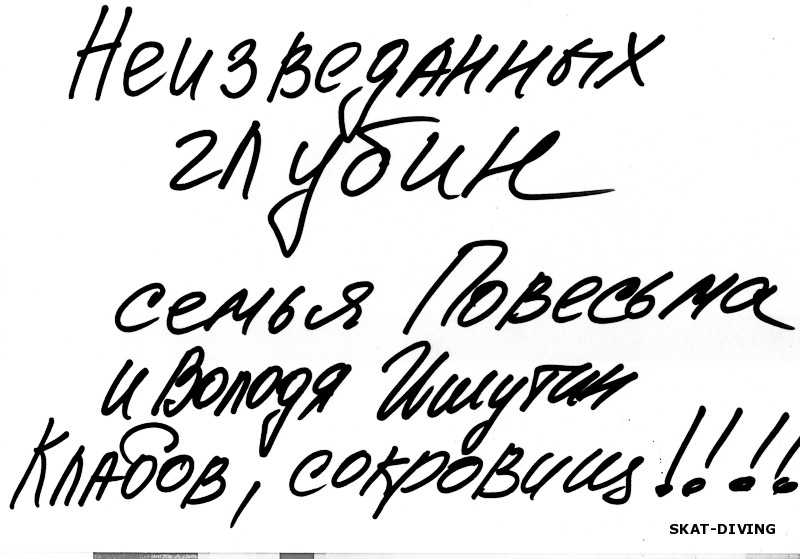 Неизведанных
глубин
семья Повесьма
и Володя Ишутин
Кладов, сокровищ!!!!
SKAT-DIVING